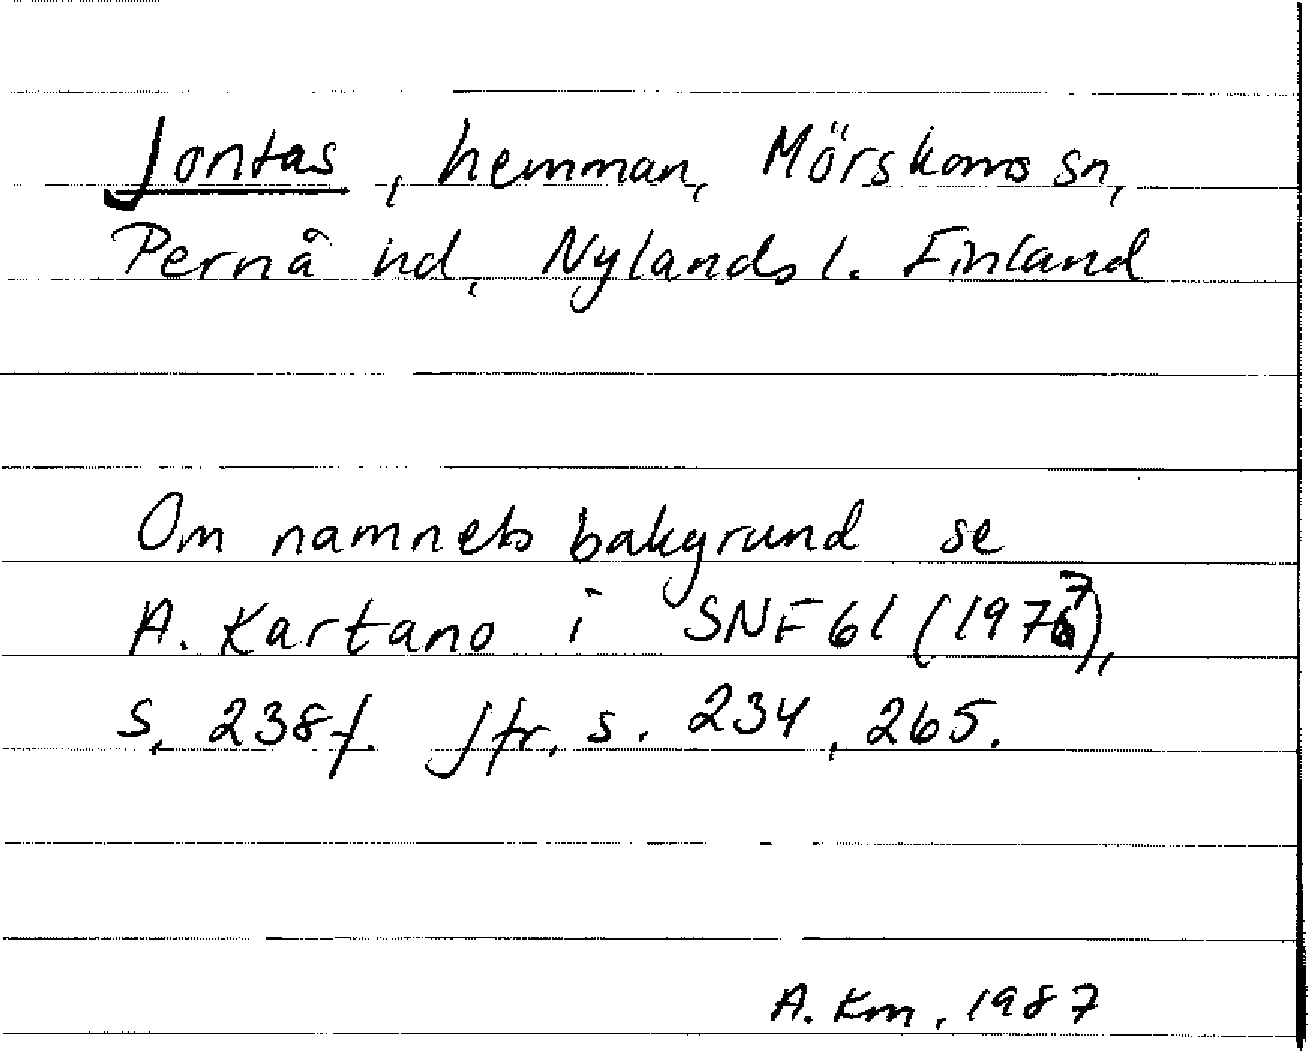 Jontas, hemman, Mörskoms sn,
Pernå hd, Nylands l. Finland
Om namnets bakgrund se
A. Kartano i SNF 61 (1977),
s. 238 f. Jfr. s. 234, 265.
A. Km, 1987